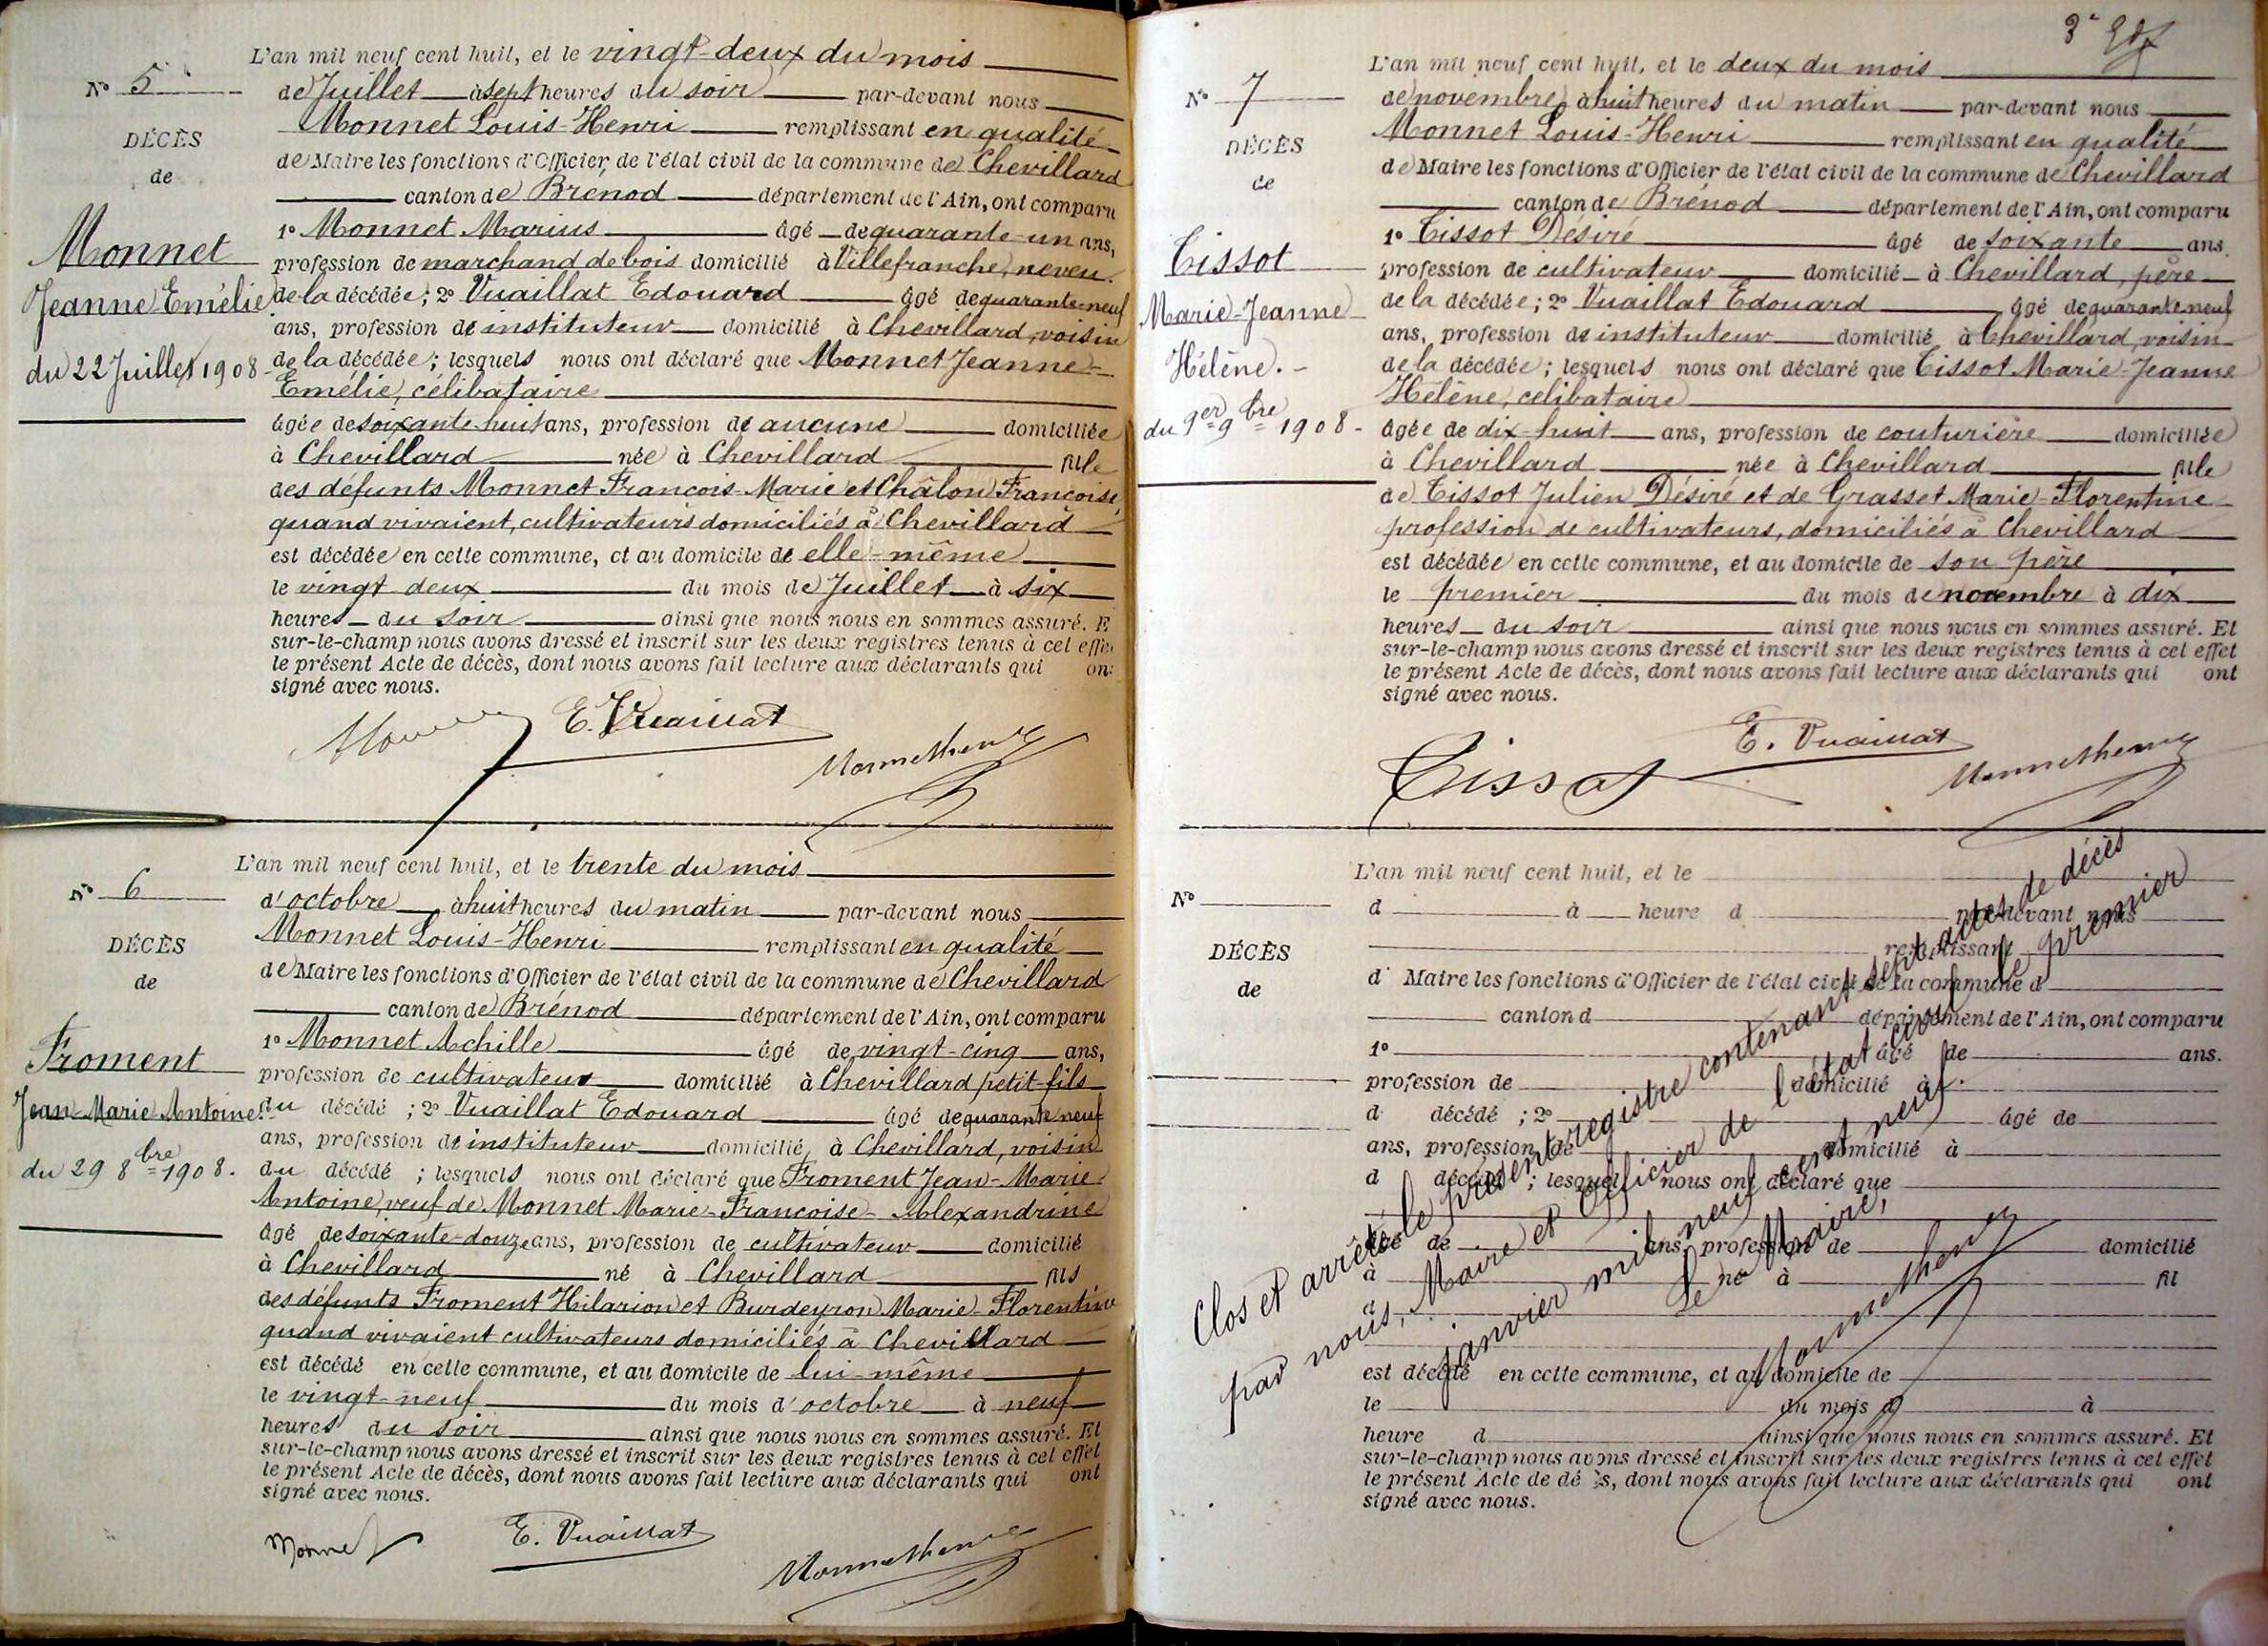 L'an mil neuf cent huit, et le vingt-deux du mois
N° 5
de Juillet à sept heures du soir par-devant nous
Monnet Louis-Henri remplissant en qualité
DÉCÈS
de Maire les fonctions d'Officier de l'état civil de la commune de Chevillard
de
canton de Brénod département de l'Ain, ont comparu
1° Monnet Marius âgé de quarante-un ans,
Monnet
profession de marchand de bois domicilié à Villefranche, neveu
Jeanne-Emélie
de la décédée; 2° Vuaillat Edouard âgé de quarante neuf
ans, profession de instituteur domicilié à Chevillard, voisin
du 22 Juillet 1908
de la décédée; lesquels nous ont déclaré que Monnet Jeanne-
Emélie, célibataire
âgée de soixante-huit ans, profession de aucune domiciliée
à Chevillard née à Chevillard fille
des défunts Monnet François-Marie et Châlon Françoise,
quand vivaient, cultivateurs domiciliés à Chevillard
est décédée en cette commune, et au domicile de elle-même
le vingt deux du mois de Juillet à six
heures du soir ainsi que nous nous en sommes assuré. E
sur-le-champ nous avons dressé et inscrit sur les deux registres tenus à cet effe
le présent Acte de décès, dont nous avons fait lecture aux déclarants qui on
signé avec nous.
E. Vuaillat
Monnet henri
L'an mil neuf cent huit, et le trente du mois
N° 6
d'octobre à huit heures du matin par-devant nous
Monnet Louis-Henri remplissant en qualité
DÉCÈS
de Maire les fonctions d'Officier de l'état civil de la commune de Chevillard
de
canton de Brénod département de l'Ain, ont comparu
1° Monnet Achille âgé de vingt-cinq ans,
Froment
profession de cultivateur domicilié à Chevillard petit-fils
Jean-Marie Antoine.
du décédé; 2° Vuaillat Edouard âgé de quarante neuf
ans, profession de instituteur domicilié, à Chevillard, voisin
du 29 8bre 1908.
du décédé; lesquels nous ont déclaré que Froment Jean-Marie-
Antoine, veuf de Monnet Marie-Françoise-Alexandrine
âgé de soixante-douze ans, profession de cultivateur domicilié
à Chevillard né à Chevillard fils
des défunts Froment Hilarion et Burdeyron Marie-Florentine
quand vivaient cultivateurs domiciliés à Chevillard
est décédé en cette commune, et au domicile de lui-même
le vingt-neuf du mois d'octobre à neuf
heures du soir ainsi que nous nous en sommes assuré. Et
sur-le-champ nous avons dressé et inscrit sur les deux registres tenus à cet effet
le présent Acte de décès, dont nous avons fait lecture aux déclarants qui ont
signé avec nous.
Monnet E. Vuaillat Monnet henri
L'an mil neuf cent huit, et le deux du mois
N° 7
de novembre à huit heures du matin par-devant nous
Monnet Louis-Henri remplissant en qualité
DÉCÈS
de Maire les fonctions d'Officier de l'état civil de la commune de Chevillard
de
canton de Brénod département de l'Ain, ont comparu
1° Tissot Désiré âgé de soixante ans.
Tissot
profession de cultivateur domicilié à Chevillard, père
Marie-Jeanne
de la décédée; 2° Vuaillat Edouard âgé de quarante neuf
ans, profession de instituteur domicilié à Chevillard, voisin
Hélène.
de la décédée; lesquels nous ont déclaré que Tissot Marie-Jeanne
Hélène, célibataire
du 1er 9bre 1908
âgée de dix-huit ans, profession de couturière domiciliée
à Chevillard née à Chevillard fille
de Tissot Julien Désiré et de Grasset Marie-Florentine
profession de cultivateurs, domiciliés à Chevillard
est décédée en cette commune, et au domicile de son père
le premier du mois de novembre à dix
heures du soir ainsi que nous nous en sommes assuré. Et
sur-le-champ nous avons dressé et inscrit sur les deux registres tenus à cet effet
le présent Acte de décès, dont nous avons fait lecture aux déclarants qui ont
signé avec nous.
Tissot E. Vuaillat Monnet henri
L'an mil neuf cent huit, et le
N°
d à heure d par-devant nous
remplissant
DÉCÈS
d Maire les fonctions d'Officier de l'état civil de la commune d
de
canton d département de l'Ain, ont comparu
1° âgé de ans.
profession de domicilié à
d décédé ; 2° âgé de
ans, profession de domicilié à
d décédé ; lesquels nous ont déclaré que
âgé de ans, profession de domicilié
à né à fil
d
est décédé en cette commune, et au domicile de
le du mois d à
heure d ainsi que nous nous en sommes assuré. Et
sur-le-champ nous avons dressé et inscrit sur les deux registres tenus à cet effet
le présent Acte de décès, dont nous avons fait lecture aux déclarants qui ont
signé avec nous.
Clos et arrêté le présent registre contenant sept actes de décès
par nous, Maire et Officier de l'état civil le premier
janvier mil neuf cent neuf.
Le Maire,
Monnet henri